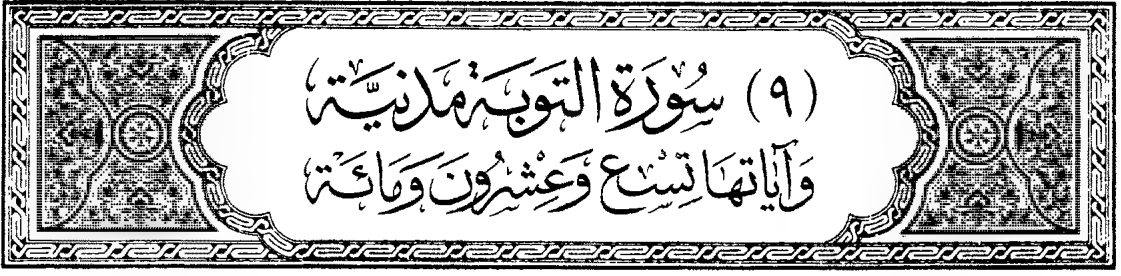 (٩) سُوْرَة التوبَة مَدَنيَّة
وَآيَاتهَا تِسْع وَعشْرُونَ وَمَائَة